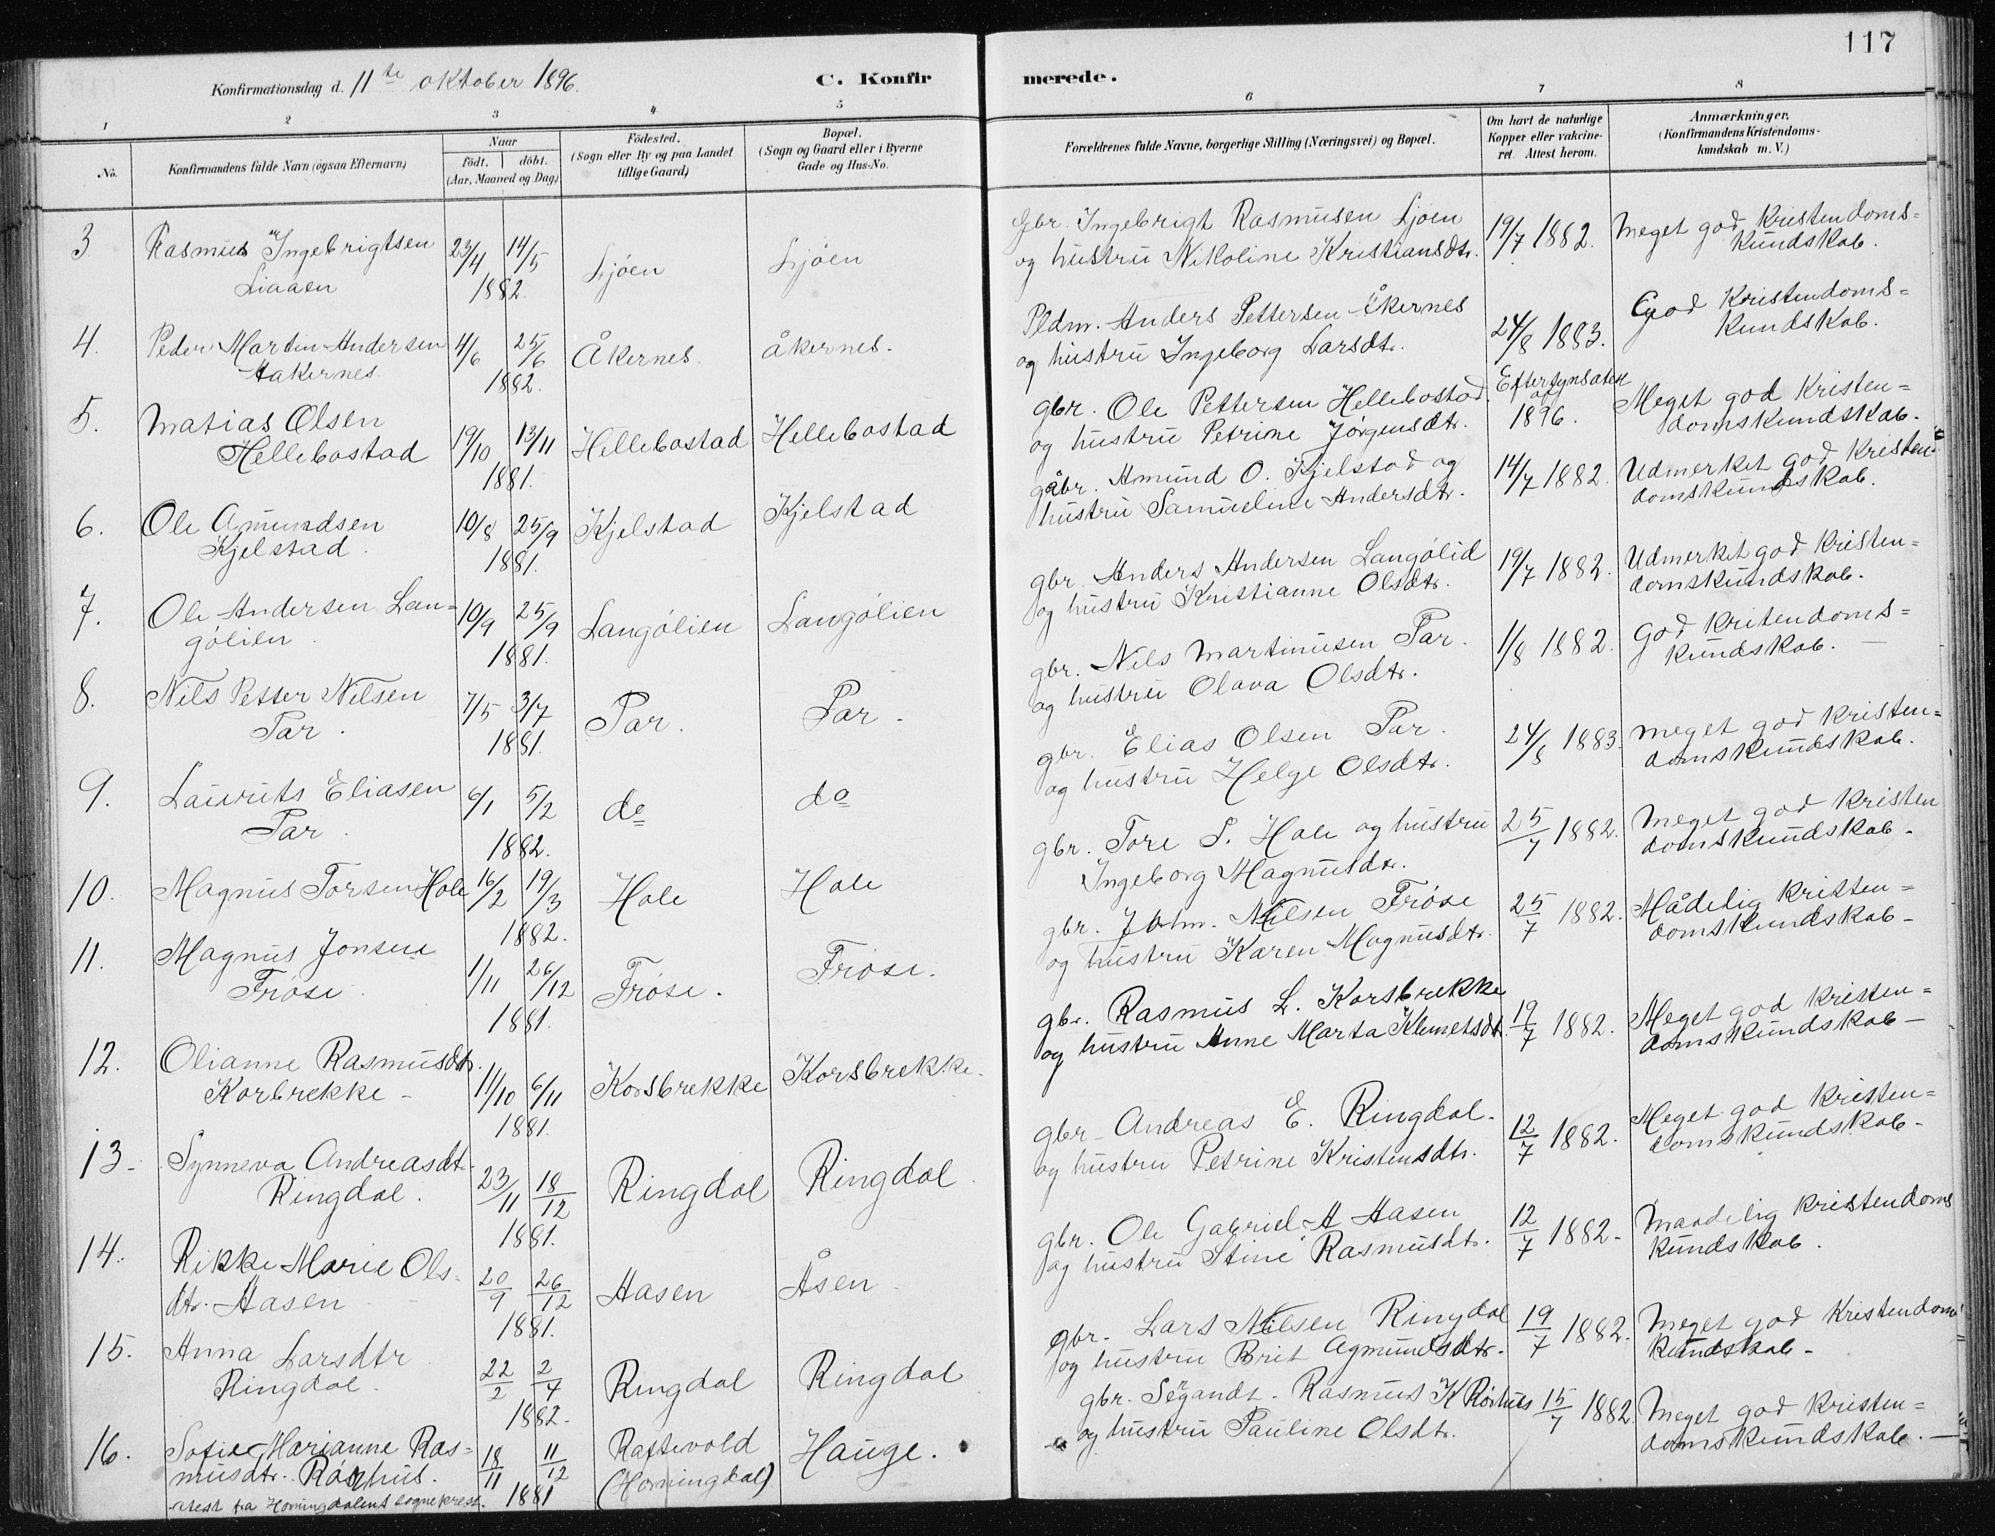 117
Konfirmationsdag d. 11te oktober 1896.
C. Konfir
merede.
1 2 3 4 5 6 7 8
No.
Konfirmandens fulde Navn (ogsaa Efternavn)
Naar
födt. döbt.
(Aar, Maaned og Dag)
Födested.
(Sogn eller By og paa Landet
tillige Gaard)
Bopæl.
(Sogn og Gaard eller i Byerne
Gade og Hus-No.
Forældrenes fulde Navne, borgerlige Stilling (Næringsvei) og Bopæl.
Om havt de naturlige
Kopper eller vakcine-
ret. Attest herom.
Anmærkninger.
(Konfirmandens Kristendoms-
kundskab m. V.)
3 Rasmus Ingebrigtsen 23/4 14/5 Ljöen Ljöen Gbr. Ingebrigt Rasmusen Ljöen 19/7 1882. Meget god Kristendoms=
Liaaen 1882. og hustru Nikoline Kristiansdtr. Kundskab.
4. Peder Martin Andersen 4/6 25/6 Åkernes. Åkernes. Pldm. Anders Pettersen Åkernes 24/8 1883. God Kristendoms=
Aakernes. 1882. og hustru Ingeborg Larsdtr. Kundskab.
5. Matias Olsen 19/10 13/11 Hellebostad Hellebostad gbr. Ole Pettersen Hellebostad. Meget god Kristen=
Hellebostad 1881. og hustru Petrine Jörgensdtr. 1896. domskundskab.
6. Ole Amundsen 10/8 25/9 Kjelstad Kjelstad gbr. Amund O. Kjelstad og 14/7 1882. Udmerket god Kristen=
Kjelstad. 1881. hustru Samueline Andersdtr. domskundskab.
7. Ole Andersen Lan= 10/9 25/9 Langölien Langölien gbr. Anders Andersen Langölid 19/7 1882. Udmerket god Kristen=
gölien. 1881. og hustru Kristianne Olsdtr. domskundskab.
8. Nils Petter Nilsen 7/5 3/7 Tar. Tar. gbr. Nils Martinusen Tar. 1/8 1882. God Kritendoms=
Tar. 1881. og hustru Olava Olsdtr. Kundskab.
9. Lauruts Eliasen 6/1 5/2 do do gbr. Elias Olsen Tar. 24/8 1883. Meget god Kristen=
Tar. 1882. og hustru Helge Olsdtr. domskundskab.
10. Magnus Torsen Hole 16/2 19/3 Hole Hole gbr. Tore S. Hole og hustru 25/7 1882. Meget god Kristen
1882. Ingeborg Magnusdtr. domskundskab.
11. Magnus Jonsen 1/11 26/12 Fröse. Fröse. gbr. John. Nilsen Fröse 25/7 1882. Mådelig Kristen=
Fröse. 1881. og hustru Karen Magnusdtr. domskundskab-
12. Olianne Rasmusdtr. 11/10 6/11 Korsbrekke Korsbrekke. gbr. Rasmus L. Korsbrekke 19/7 1882. Meget god Kristen=
Korbrekke- 1881. og hustru Anne Marta Klmetsdtr. domskundskab-
13. Synneva Andreasdtr. 23/11 18/12 Ringdal Ringdal. gbr- Andreas E. Ringdal. 12/7 1882. Meget god Kristen=
Ringdal. 1881. og hustru Petrine Kristensdtr. domskundskab-
14. Rikke Marie Ols- 20/9 26/12 Aasen Åsen gbr. Ole Gabriel A Aasen 12/7 1882- Maadelig Kristendoms
dtr. Aasen 1881. og hustru Stine Rasmusdtr. Kundskab.
15. Anna Larsdtr 22/2 2/4 Ringdal Ringdal gbr. Lars Nilsen Ringdal 19/7 1882. Meget god Kristendoms
Ringdal. 1882. og hustru Brit Agmundsdtr. Kundskab-
16. Sofie Marianne Ras= 18/11 11/12 Raftevold Hauge. gbr. Rasmus K Röshus 15/7 1882. Meget god Kristen=
musdtr. 1881 (Horningdal) og hustru Pauline Olsdtr. domskundskab.
atest fra Horningdalens sogneprest.